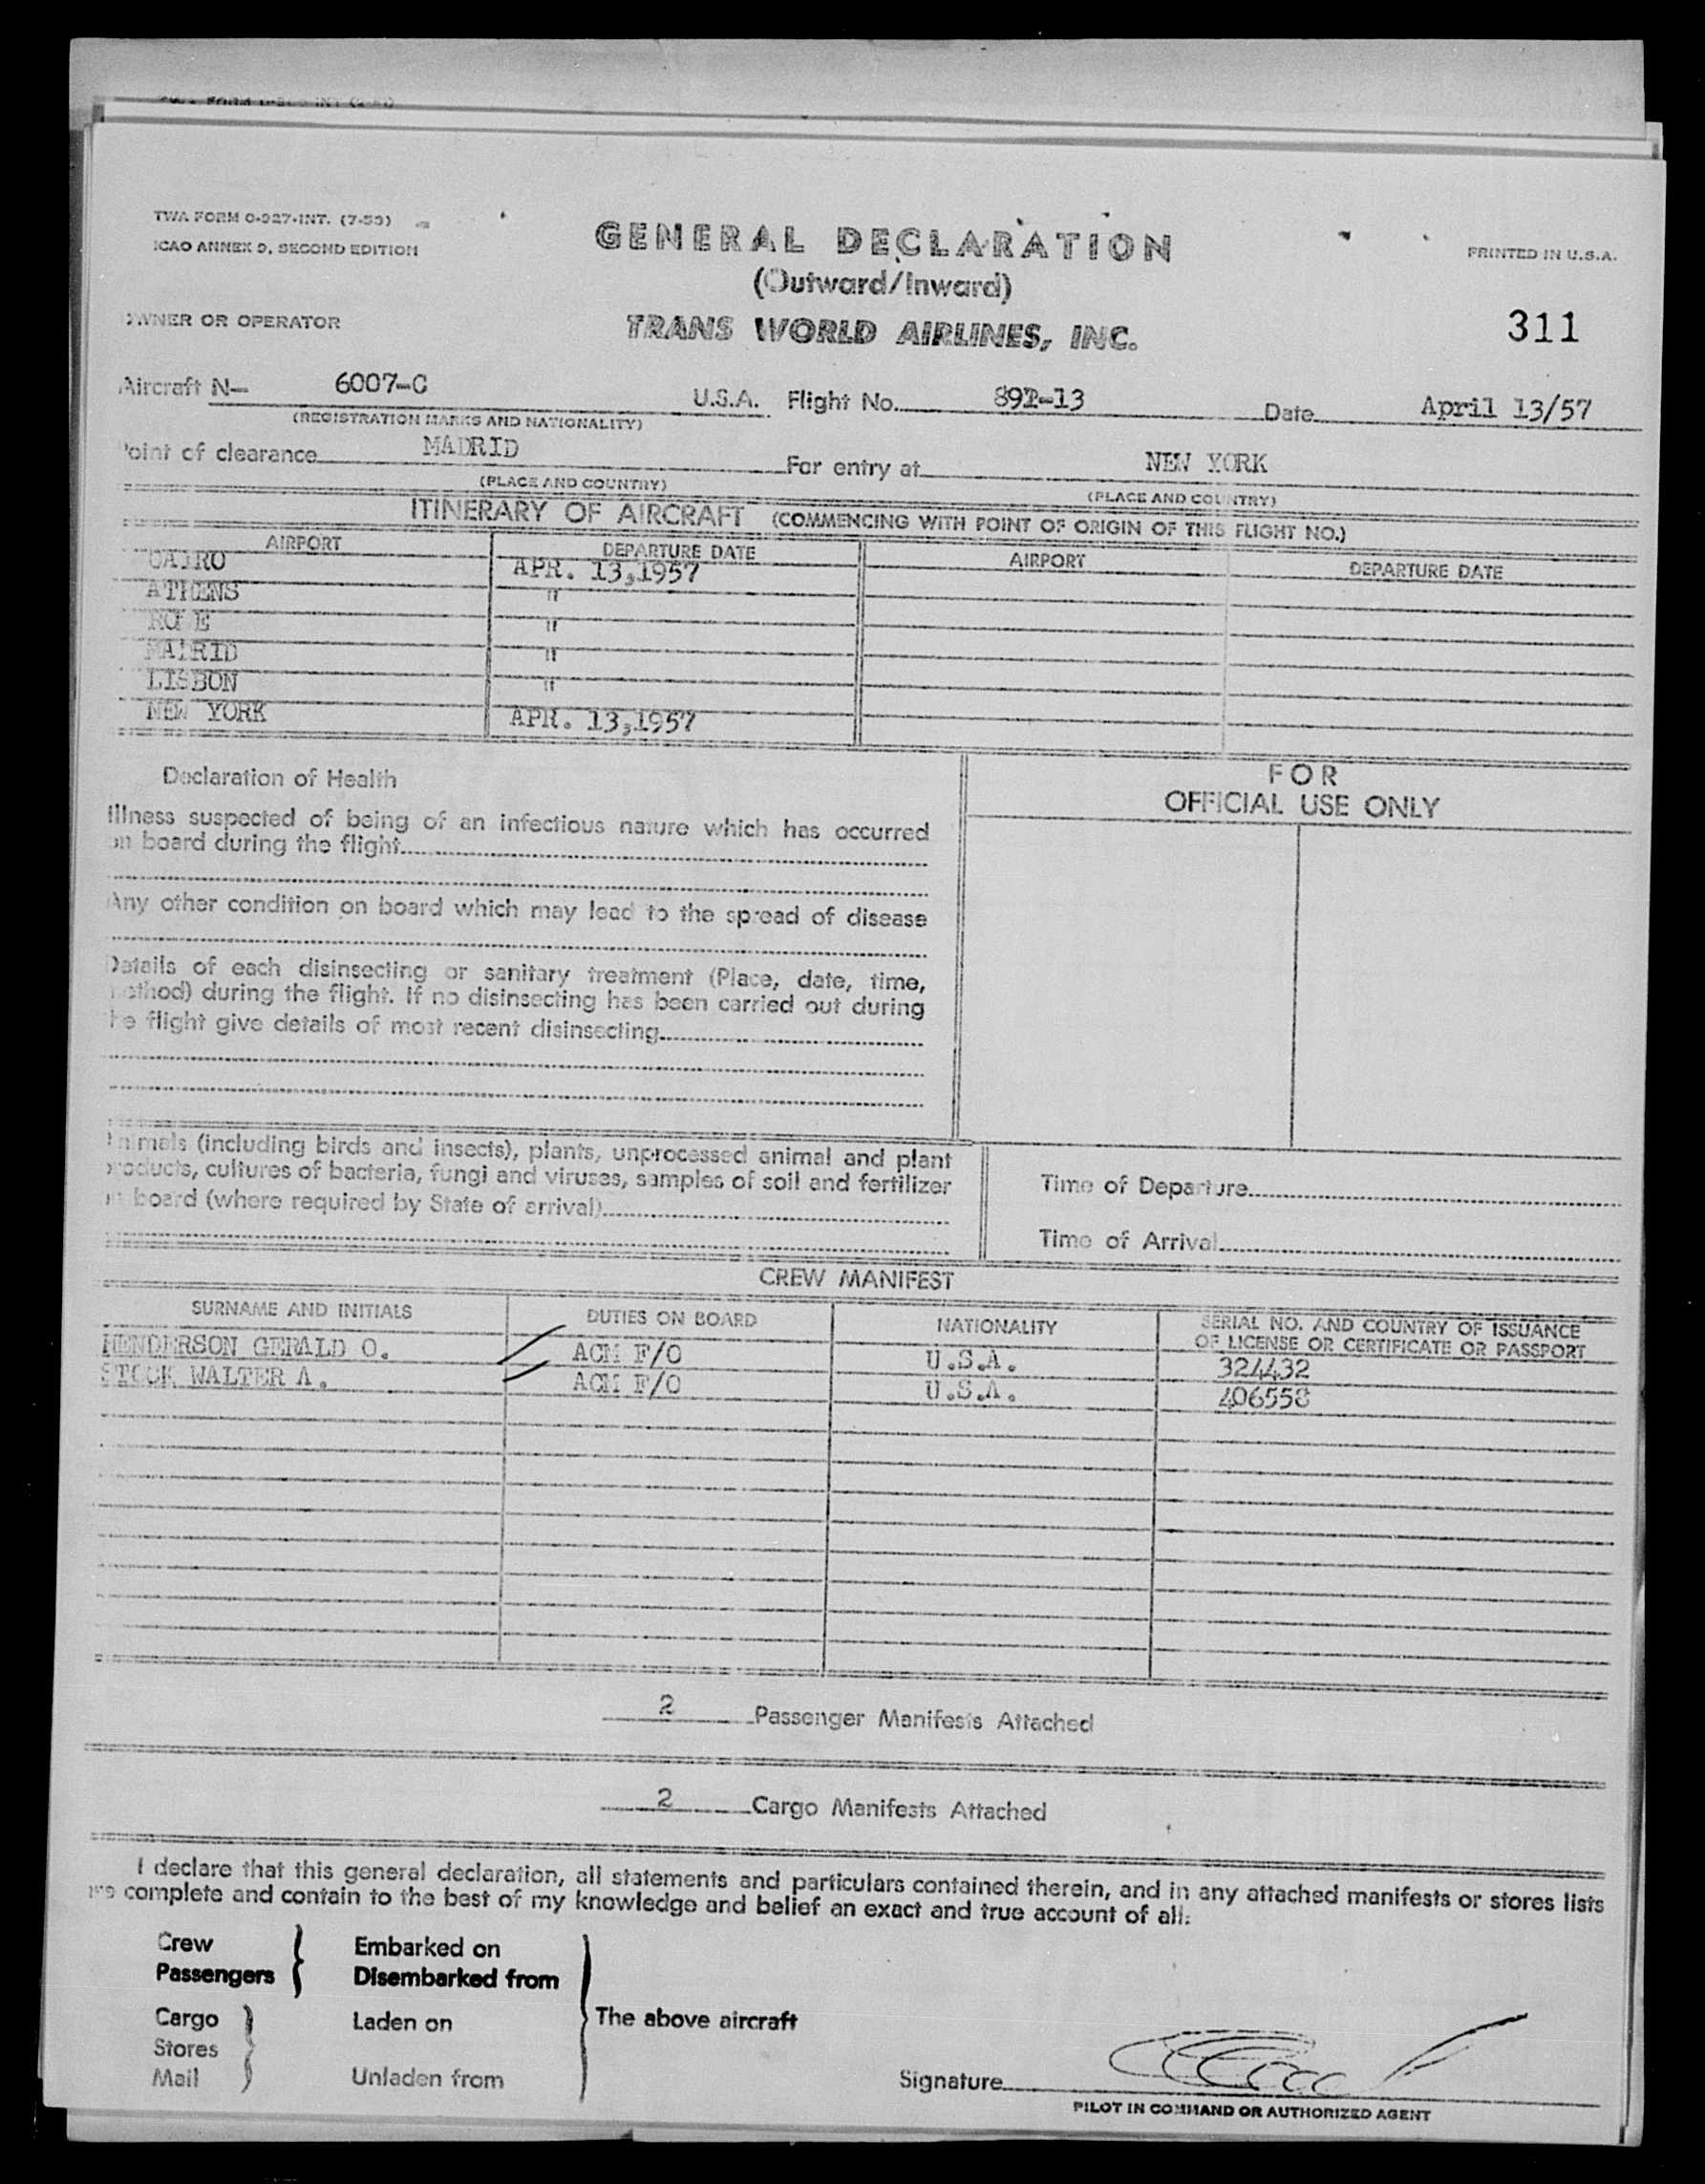 TWA FORM O-927-INT. (7-53)
ICAO ANNEX 9, SECOND EDITION
GENERAL DECLARATION
(Outward/Inward)
PRINTED IN U.S.A.
OWNER OR OPERATOR
TRANS WORLD AIRLINES, INC.
311
Aircraft N- 6007-C U.S.A. Flight No. 892-13 Date April 13/57
(REGISTRATION MARKS AND NATIONALITY)
Point of clearance MADRID For entry at NEW YORK
(PLACE AND COUNTRY) (PLACE AND COUNTRY)
ITINERARY OF AIRCRAFT (COMMENCING WITH POINT OF ORIGIN OF THIS FLIGHT NO.)
AIRPORT DEPARTURE DATE AIRPORT DEPARTURE DATE
CAIRO APR. 13,1957
ATHENS "
ROME "
MADRID "
LISBON "
NEW YORK APR. 13,1957
Declaration of Health
Illness suspected of being of an infectious nature which has occurred
on board during the flight
Any other condition on board which may lead to the spread of disease
Details of each disinsecting or sanitary treatment (Place, date, time,
method) during the flight. If no disinsecting has been carried out during
the flight give details of most recent disinsecting
FOR
OFFICIAL USE ONLY
Animals (including birds and insects), plants, unprocessed animal and plant
products, cultures of bacteria, fungi and viruses, samples of soil and fertilizer
on board (where required by State of arrival)
Time of Departure
Time of Arrival
CREW MANIFEST
SURNAME AND INITIALS DUTIES ON BOARD NATIONALITY SERIAL NO. AND COUNTRY OF ISSUANCE
OF LICENSE OR CERTIFICATE OR PASSPORT
HENDERSON GERALD O. ACM F/O U.S.A. 324432
STOCK WALTER A. ACM F/O U.S.A. 406558
2 Passenger Manifests Attached
2 Cargo Manifests Attached
I declare that this general declaration, all statements and particulars contained therein, and in any attached manifests or stores lists
are complete and contain to the best of my knowledge and belief an exact and true account of all:
Crew Embarked on
Passengers Disembarked from
Cargo Laden on The above aircraft
Stores
Mail Unladen from
Signature
PILOT IN COMMAND OR AUTHORIZED AGENT